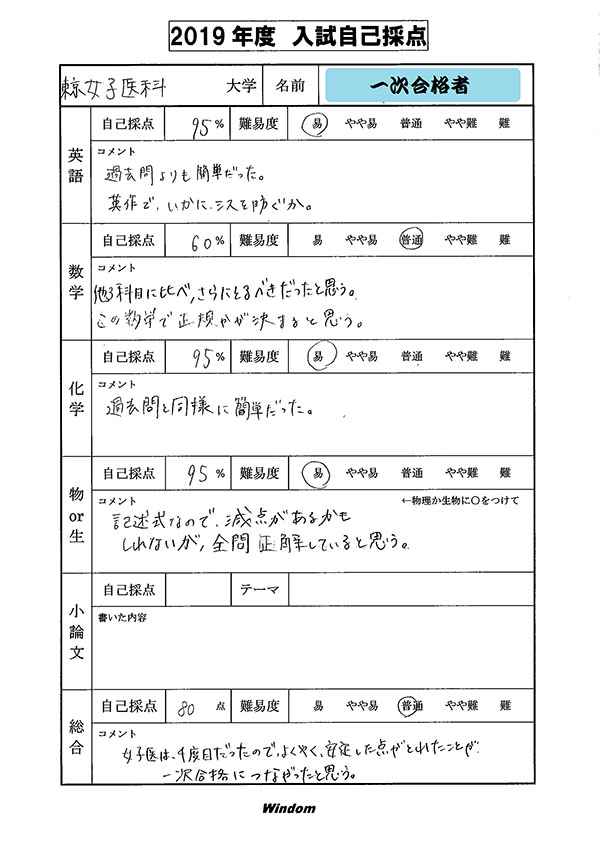 2019年度 入試自己採点
東京女子医科 大学 名前 一次合格者
英語 自己採点 95% 難易度 易 やや易 普通 やや難 難
コメント
過去問よりも簡単だった。
英作で、いかにミスを防ぐか。
数学 自己採点 60% 難易度 易 やや易 普通 やや難 難
コメント
他3科目に比べ、さらにとるべきだったと思う。
この数学で正規かが決まると思う。
化学 自己採点 95% 難易度 易 やや易 普通 やや難 難
コメント
過去問と同様に簡単だった。
物or生 自己採点 95% 難易度 易 やや易 普通 やや難 難
コメント ←物理か生物に〇をつけて
記述式なので、減点があるかも
しれないが、全問正解していると思う。
小論文 自己採点 テーマ
書いた内容
総合 自己採点 80点 難易度 易 やや易 普通 やや難 難
コメント
女子医は、4度目だったので、ようやく、安定した点がとれたことが
一次合格につながったと思う。
Windom